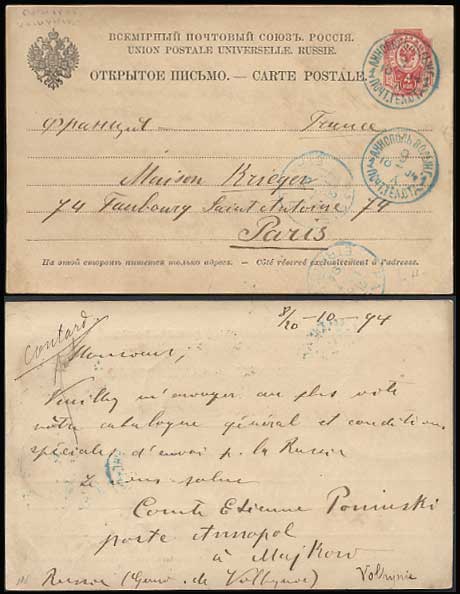 ВСЕМІРНЫЙ ПОЧТОВЫЙ СОЮЗЪ. РОССІЯ.
UNION POSTALE UNIVERSELLE. RUSSIE.
ОТКРЫТОЕ ПИСЬМО. — CARTE POSTALE.
4
АННОПОЛЬ ВОЛЫНС.
ПОЧТ. ТЕЛ. ОТД.
Франція France
АННОПОЛЬ ВОЛЫНС.
ПОЧТ. ТЕЛ. ОТД.
Maison Krieger
74 Faubourg Saint Antoine 74
Paris
На этой сторонѣ пишется только адресъ. — Côté réservé exclusivement à l'adresse.
8/20 -10- 94
contard
Monsieur,
Veuillez m'envoyer au plus vite
votre catalogue général et conditions
spéciales d'envoi p. la Russie
Je vous salue
Comte Etienne Poninski
poste Annopol
à Majkow
Russie (Gouv. de Volhynie) Volhynie